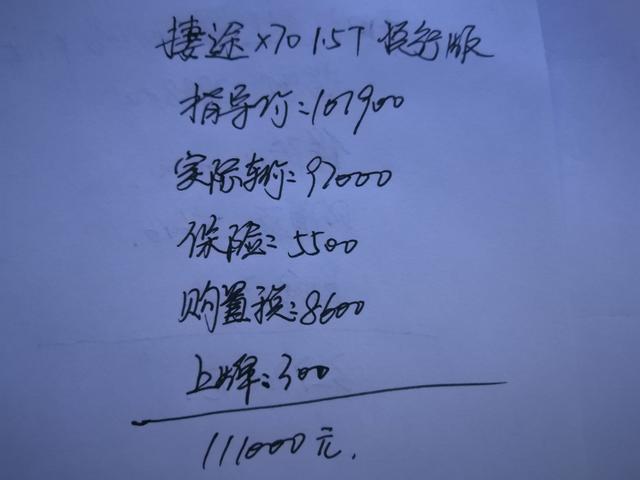 捷途X70 1.5T 悦行版
指导价:107900
实际车价:97000
保险:5500
购置税:8600
上牌:300
111000元.